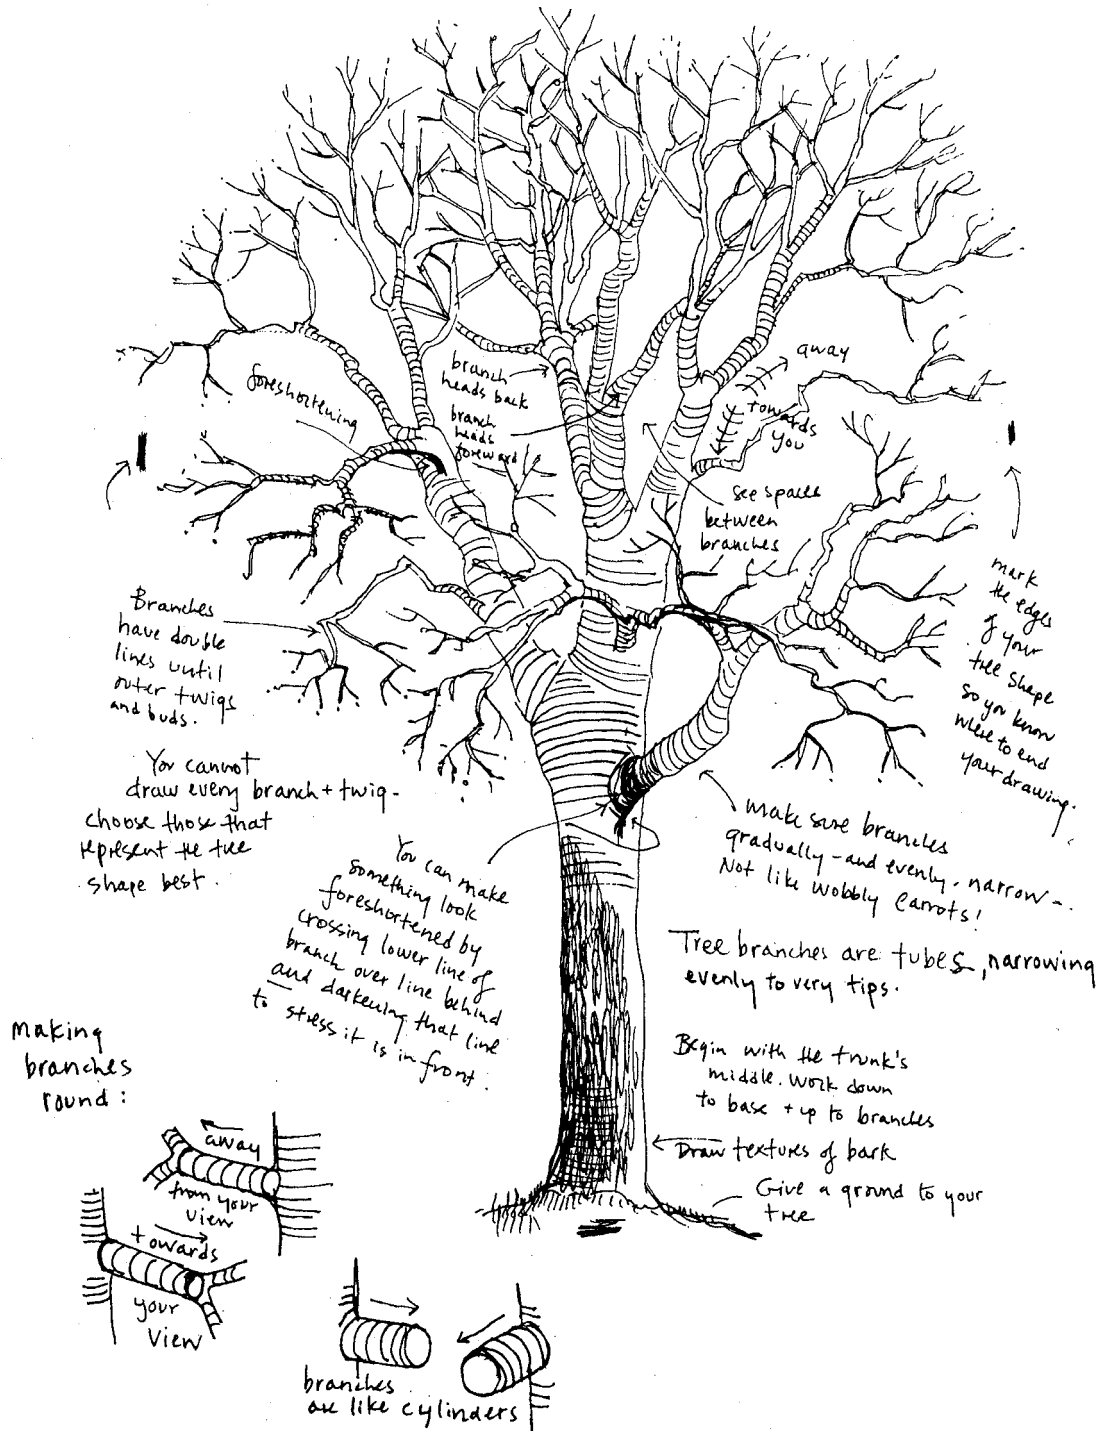 away
foreshortening
branch
heads back
branch
heads
foreward
towards
you
see spaces
between
branches
mark
the edges
of your
tree shape
so you know
where to end
your drawing.
Branches
have double
lines until
outer twigs
and buds.
You cannot
draw every branch + twig -
choose those that
represent the tree
shape best.
You can make
something look
foreshortened by
crossing lower line of
branch over line behind
and darkening that line
to stress it is in front.
Make sure branches
gradually - and evenly - narrow -.
Not like wobbly carrots!
Tree branches are tubes, narrowing
evenly to very tips.
Begin with the trunk's
middle. Work down
to base + up to branches
Draw textures of bark
Give a ground to your
tree
Making
branches
round:
away
from your
view
towards
your
view
branches
are like cylinders